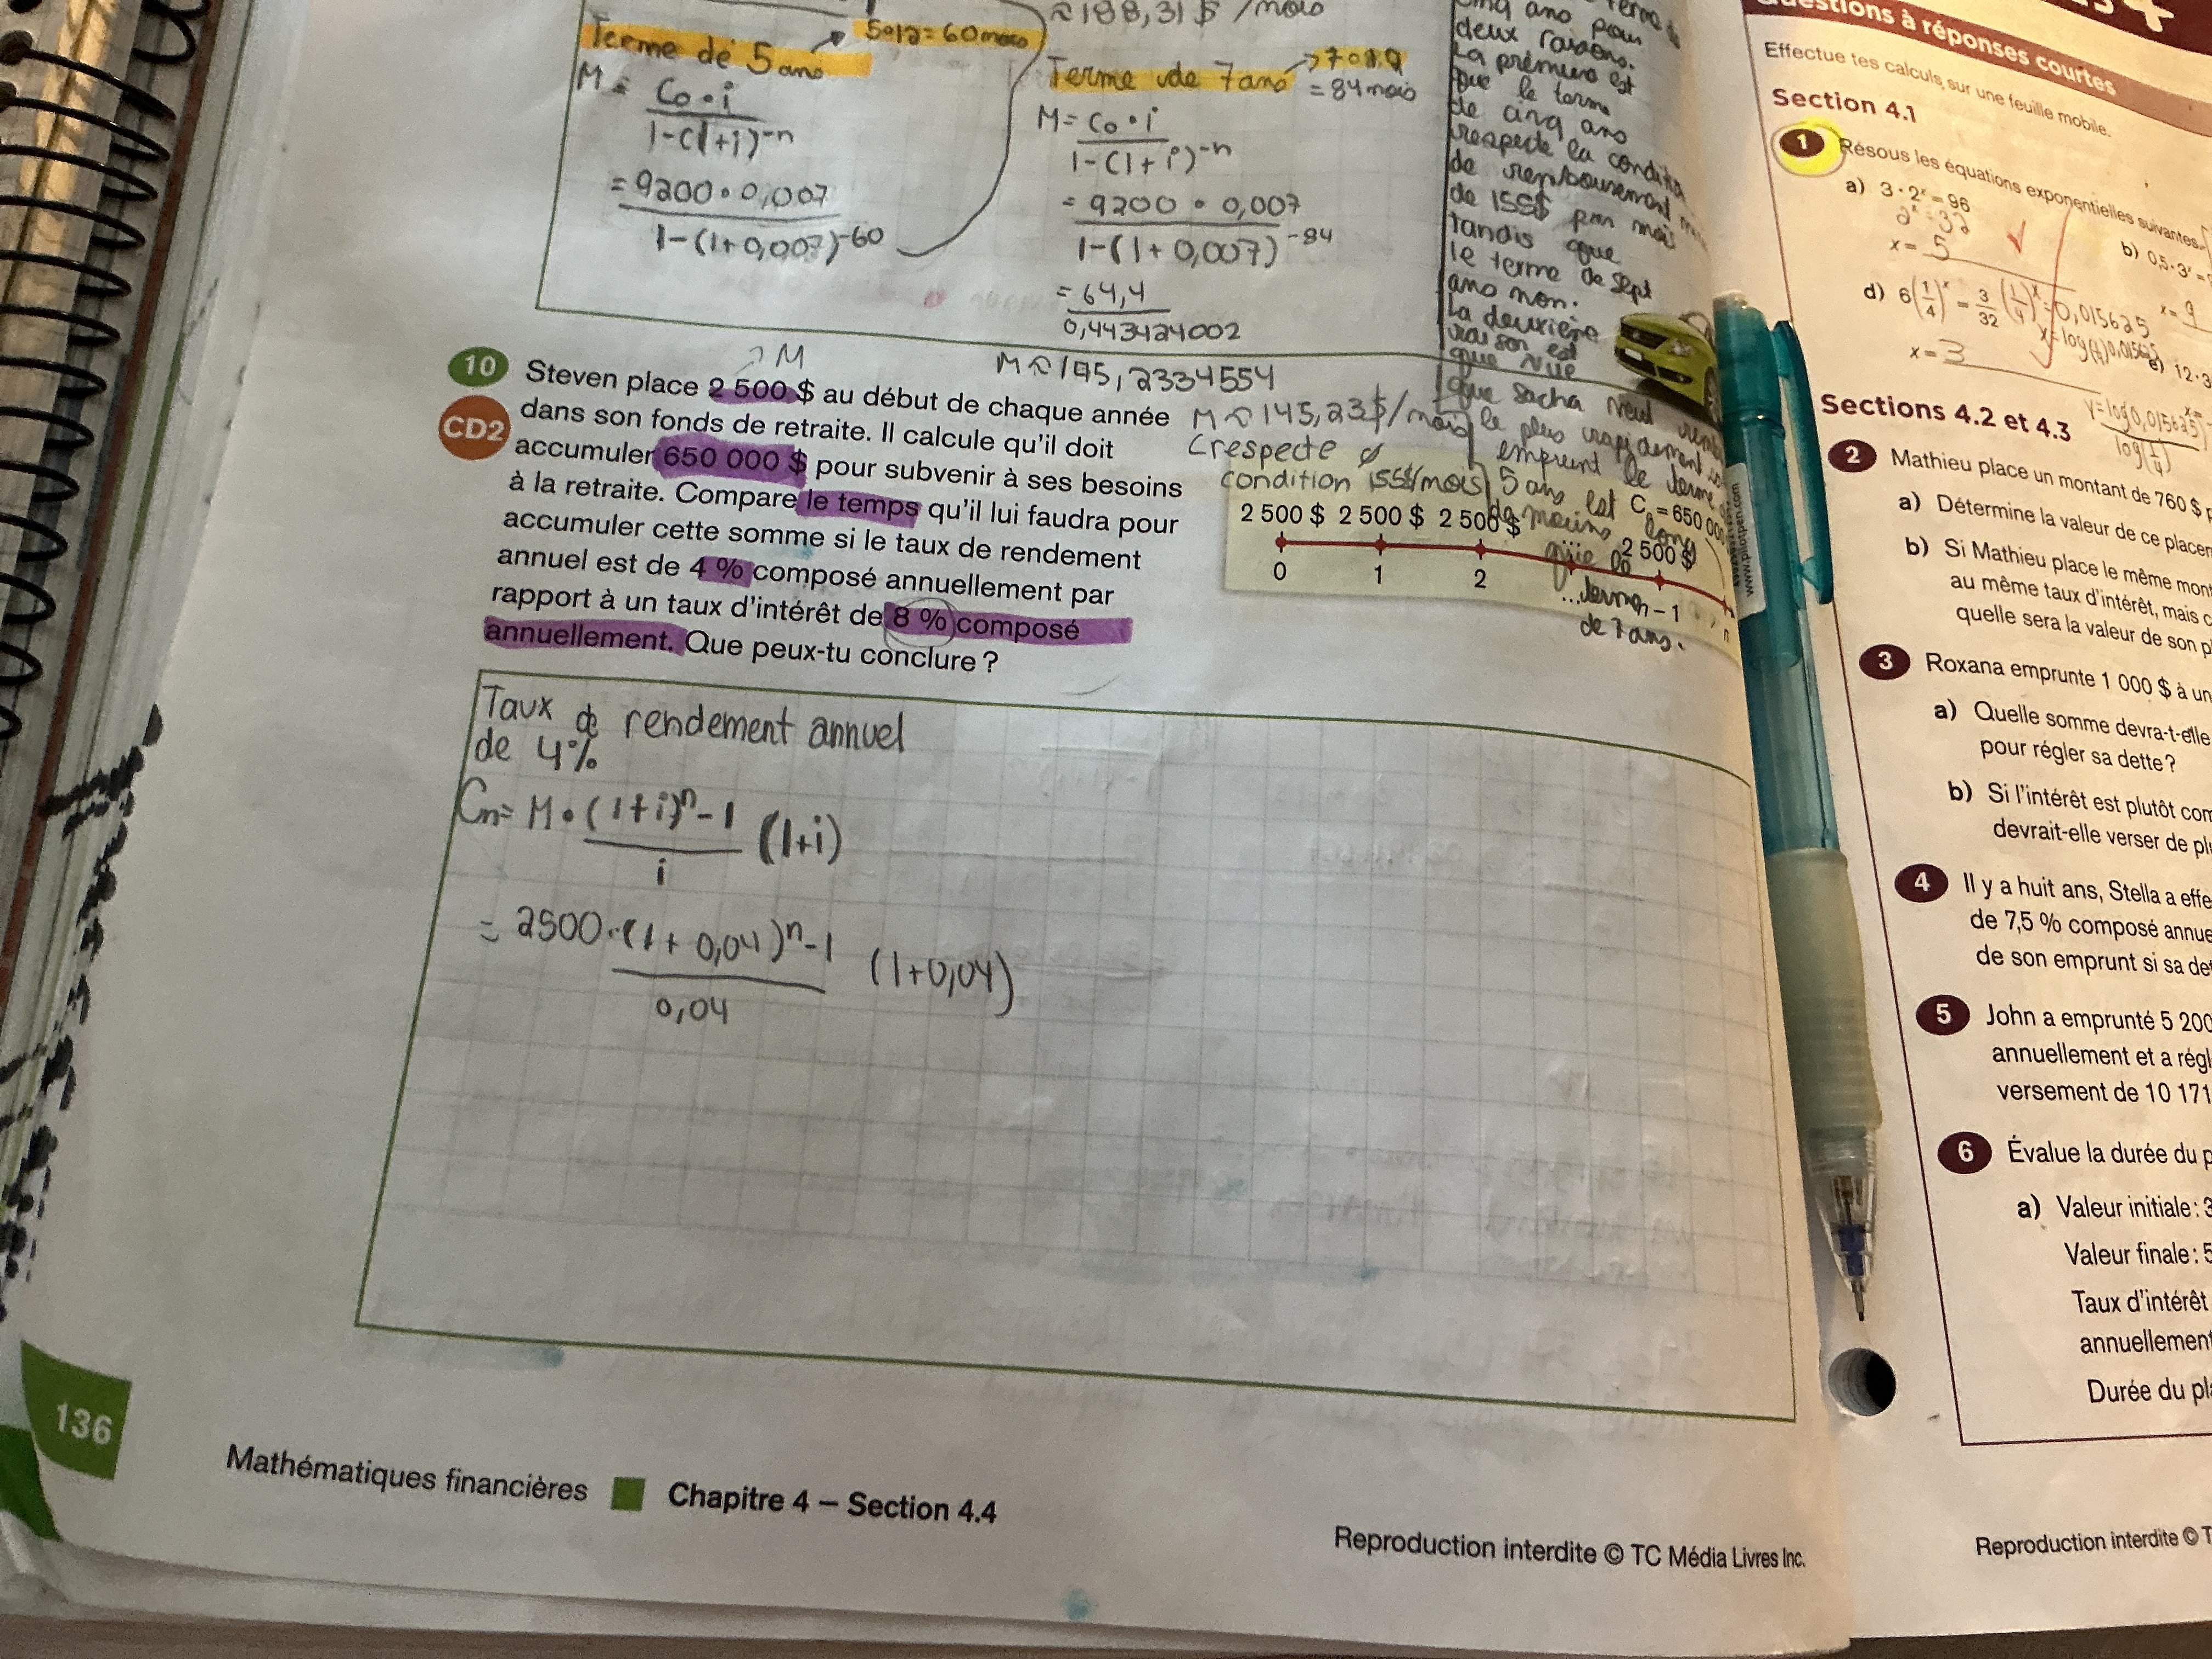 ≈188,31$ /mois
Terme de 5 ans
5•12=60mois
M = Co•i
1-(1+i)^-n
=9200•0,007
1-(1+0,007)^-60
Terme de 7 ans
= 84 mois
M= Co•i
1-(1+i)^-n
= 9200 • 0,007
1-(1+0,007)^-84
= 64,4
0,443424002
M≈145,2334554
M≈145,23$/mois
respecte
condition 155$/mois
ans pour
deux raisons.
La première est
que le terme
de cinq ans
respecte la condition
de remboursement
de 155$ par mois
tandis que
le terme de sept
ans non.
La deuxième
raison est
que
que Sacha veut
le plus rapidement
emprunt le terme
5 ans est
de moins long
que le
terme
de 7 ans.
10 Steven place 2 500 $ au début de chaque année
M
CD2
dans son fonds de retraite. Il calcule qu'il doit
accumuler 650 000 $ pour subvenir à ses besoins
à la retraite. Compare le temps qu'il lui faudra pour
accumuler cette somme si le taux de rendement
annuel est de 4 % composé annuellement par
rapport à un taux d'intérêt de 8 % composé
annuellement. Que peux-tu conclure ?
Cn = 650 000
2 500 $ 2 500 $ 2 500 $ ... 2 500 $
0 1 2 ... n – 1 n
Taux de rendement annuel
de 4%
Cn= M•(1+i)^n-1 (1+i)
i
= 2500•(1+0,04)^n-1 (1+0,04)
0,04
136
Mathématiques financières Chapitre 4 – Section 4.4
Reproduction interdite © TC Média Livres Inc.
Questions à réponses courtes
Effectue tes calculs sur une feuille mobile.
Section 4.1
1 Résous les équations exponentielles suivantes.
a) 3 · 2^x = 96
2^x=32
x= 5
b) 0,5 · 3^x =
x= 9
d) 6(1/4)^x = 3/32 (1/4)^x=0,015625
x = 3
e) 12 · 3
log(0,015625)
log(1/4)
Sections 4.2 et 4.3
2 Mathieu place un montant de 760 $
a) Détermine la valeur de ce
b) Si Mathieu place le même
au même taux d'intérêt, mais
quelle sera la valeur de son
3 Roxana emprunte 1 000 $ à
a) Quelle somme devra-t-elle
pour régler sa dette ?
b) Si l'intérêt est plutôt
devrait-elle verser de
4 Il y a huit ans, Stella a
de 7,5 % composé
de son emprunt si sa
5 John a emprunté 5 200
annuellement et a
versement de 10 171
6 Évalue la durée du
a) Valeur initiale :
Valeur finale :
Taux d'intérêt
Durée du
Reproduction interdite ©